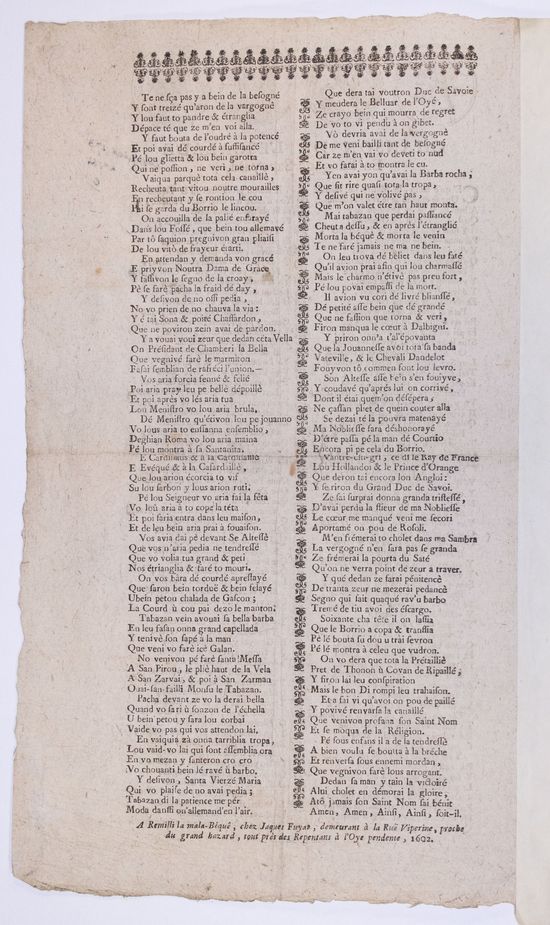 Te ne sça pas y a bein de la besogné
Y sont treizé qu'aron de la vergogné
Y lou faut to pandre & étranglia
Dépace té que ze m'en voi alla.
Y faut bouta de l'oudré à la potencé
Et poi avai dé courdé à suffisancé
Pé lou glietta & lou bein garotta
Qui ne possion, ne veri, ne torna,
Vaiqua parquè tota cela canaillé,
Recheuta tant vitou noutre mourailles
En recheutant y se rontion le cou
Pai se garda du Borrio le lincou.
On accouilla de la palié enferayé
Dans lou Fossé, que bein tou allemavé
Par tô saquion pregnivon gran plaisi
De lou vitò de frayeur éiarti.
En attendan y demanda von gracé
E privvon Noutra Dama de Grace
Y fassivon le segno de la croay,
Pè se farè pacha la fraid dé day,
Y desivon de no ossi pedia,
No vo prien de no chauva la via:
Y é tai Sona & poité Chaffardon,
Que ne poviron zein avai de pardon.
Y a vouai vouï zeur que dedan ceta Vella
On Président de Chamberi la Bella
Que vegnivé faré le marmion
Fasai semblian de rafiéci l'union.—
Vos aria forcia senné & felié
Poi aria pray leu pe bellé dépoillé
Et poi après vo lés aria tua
Lou Menistro vo lou aria brula,
Dé Menistro qu'étivon lou pe jouanno
Vo lous aria to enssanna ensemblio,
Deghian Roma vo lou aria maina
Pé lou montra à sa Santanita.
E Cardinaus & à la Cardinaille
E Evéqué & à la Cafardaillé,
Que lou arion écorcia to vif
Su lou sarbon y lous arion roti.
Pé lou Seigneur vo aria fai la fêta
Vo loû aria à to copé la téta
Et poi saria entra dans leu maison,
Et de leu bein aria prai à fouanson.
Vos avia dai pé devant Se Altessè
Que vos n'aria pedia ne tendressé
Que vo volia tua grand & peti
Nos étranglia & faré to mouri.
On vos bara dé courdé aprestayé
Que saron bein tordué & bein felayé
Ubein petou chalada de Gascon;
La Courd ù cou pai dezo le manton:
Tabazan vein avouai sa bella barba
En leu fasan onna grand capellada
Y tenivè son sapé à la man
Que veni vo faré icé Galan.
No venivon pé faré santa Messa
A San Pirou, le pliè haut de la Vela
A San Zarvai, & poi à San Zarman
O zai-san-failli Monsu le Tabazan.
Pacha devant ze vo la derai bella
Quand vo sari ù sonzon de l'échella
U bein petou y sara lou corbai
Vaide vo pas qui vos attendon lai,
En vaiquia zà onna tarriblia tropa,
Lou vaid-vo lai qui sont éssemblia ora
En vo mezan y santeron cro cro
Vo chouanti bein lé ravé ù barbo,
Y desivon, Santa Vierzé Maria
Qui vo plaise de no avai pedia;
Tabazan di la patience me pér
Moda dansti on allemand en l'air.
Que dera tai voutron Duc de Savoie
Y meudera le Belluar de l'Oyé,
Ze crayo bein qui mourra de regret
De vo to vi pendu à on gibet.
Vò devria avai de la vergogné
De me veni bailli tant de besogné
Car ze m'en vai vo deveti to nud
Et vo farai à to montra le cu.
Yen avai yon qu'avai la Barba rocha;
Que fit rire quasi tota la tropa,
Y desivé qui ne volivé pas,
Que m'on valet étre tan haut monta.
Mai tabazan que perdai passiancé
Cheuta dessu, & en après l'étranglié
Morta la béquè & morta le venin
Te ne faré jamais ne ma ne bein.
On leu trova dé bèliet dans leu faté
Qu'il avion prai afin qui lou charmassé
Mais le charmo n'étivé pas preu fort,
Pé lou povai empassi de la mort.
Il avion vu cori dé livré bliansfé,
Dé petité asse bein que dé grandé
Que ne fassion que torna & veri,
Firon manqua le cœur à Dalbigni.
Y priron onn'a t'al'épovanta
Que la Jouannesse avoi tota sa banda
Vateville, & le Chevali Dandelot
Fouyvon tô commen font lou levro.
Son Altesse asse bein s'en fouiyve,
Y coudavé qu'après lui on corrivé,
Dont il étai quem'on désépera,
Ne çassan pliet de quein couter alla
Se dezai té la pouvra matenayé
Ma Noblisse sara déshonorayé
D'étre passa pé la man dé Courtio
Encora pi pe cela du Borrio.
Vantre-chi-gri, ce di le Ray de France
Lou Hollandoi & le Prince d'Orange
Que deron tai encora lou Angloi:
Y se riron du Grand Duc de Savoi.
Ze sai surprai donna granda tristessé,
D'avai perdu la slieur de ma Nobliesse
Le cœur me manqué veni me secori
Aportamé on pou de Rosoli.
M'en frémerai to cholet dan ma Sambra
La vergogné n'en sara pas se granda
Ze frémerai la pourta du Saté
Qu'on ne verra point de zeur à traver.
Y qué dedan ze farai pénitencé
De tranta zeur ne mezerai pedancè
Segno qui fait quaqué rav'u barbo
Tremé de tiu avoi des éscargo.
Soixante cha tête il on lassia
Que le Borrio a copa & transsia
Pé lé bouta su dou u trai sevron
Pé lé montrà à celeu que vudron.
On vo dera que tota la Prétaillié
Pret de Thonon ù Covan de Ripaillé,
Y firon lai leu conspiration
Mais le bon Di rompi leu trahaison.
Et a fai vi qu'avoi on pou de paillé
Y povivé renvarsa la canaillé
Que venivon profana son Saint Nom
Et se môqua de la Réligion.
Pé sous enfans il a de la tendressè
A bien voulu se boutta à la bréche
Et renversa sous ennemi mordan,
Que vegnivon faré lous arrogant.
Dedan sa man y tain la victoiré
Alui cholet en démorai la gloire,
Atô jamais son Saint Nom sai bénit
Amen, Amen, Ainsi, Ainsi, soit-il.
A Remilli la mala-Béqué, chez Jaques Fuyar, demeurant à la Rue Viperine, proche
du grand hazard, tout près des Repentans à l'Oye pendente, 1602.